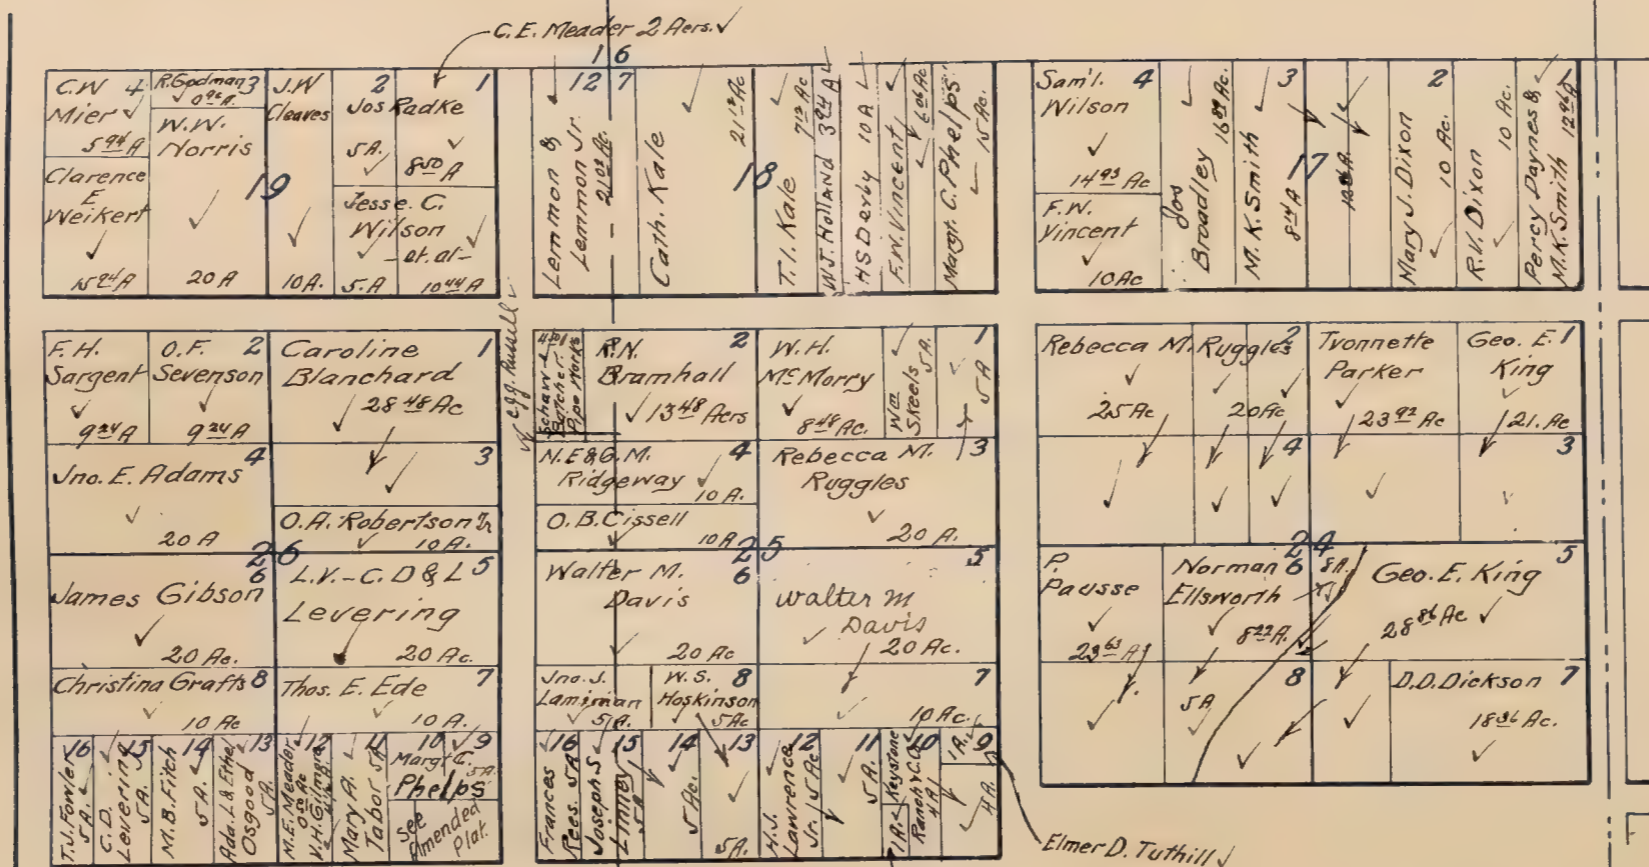 C.E. Meader 2 Acrs.
1 6
C.W.
Mier
5 94 A
4
R. Godman
3
W.W.
Norris
20 A
J.W
Cleaves
10 A.
2
Jos Radke
5 A.
1
8 50 A
Clarence
E
Weikert
19
Jesse. C.
Wilson
et. al
5. A
10 44 A
12 7
Lemmon &
Lemmon Jr.
Cath. Kale
18
T. I. Kale
W.J. Holland 3 94 A
H S Derby 10 A
F. W. Vincent
6 06 Ac
Margt. C. Phelps
15 Ac.
Sam'l.
Wilson
14 93 Ac
4
F. W.
Vincent
10 Ac
Jos
Broadley
M. K. Smith
3
17
2
Mary J. Dixon
10 Ac.
R. V. Dixon
10 Ac.
Percy Daynes &
M. K. Smith
F. H.
Sargent
O.F.
Sevenson
2
Caroline
Blanchard
28 48 Ac
1
9 24 A
9 24 A
Jno. E. Adams
20 A
4
3
O.A. Robertson Jr
10 A.
26
James Gibson
20 Ac.
6
L.V. - C. D & L
Levering
20 Ac.
5
Christina Grafts
10 Ac
8
Thos. E. Ede
10 A.
7
16
T. J. Fowler
5 A.
15
C. D.
Levering
5 A.
14
M. B. Fitch
5 A.
13
Ada. L & Ethel
Osgood
5 A.
12
M. E. Meader
V. H. Gilmore
11
Mary A.
Tabor 5 A
10
9
Margt C.
Phelps
5 A.
see
Amended
Plat.
Russell
Pipe Works
R. N.
Bramhall
13 48 Acrs
2
W. H.
McMorry
8 48 Ac.
Wm
Skeels
5 A.
1
5 A
N. E & G. M.
Ridgeway
10 A.
4
Rebecca M.
Ruggles
20 A.
3
O. B. Cissell
10 A
25
Walter M.
Davis
20 Ac
6
Walter M
Davis
20 Ac.
5
Jno. J.
Lamiman
5 A.
W. S.
Hoskinson
5 Ac
8
7
10 Ac.
16
Frances
Rees. 5 A
15
Joseph S
Linney
5 A
14
5 Ac.
13
5 A.
12
H. J.
Lawrence
Jr. 5 Ac
11
5 A.
10
1 A.
Keystone
Ranch Co.
4 A
9
1 A.
4 A.
Elmer D. Tuthill
Rebecca M. Ruggles
25 Ac
20 Ac
2
Tvonnette
Parker
23 92 Ac
Geo. E.
King
21. Ac
1
4
3
24
P.
Pausse
23 63 A
Norman
Ellsworth
8 22 A.
6
8 A.
Geo. E. King
28 86 Ac
5
5 A
8
D.D. Dickson
18 36 Ac.
7